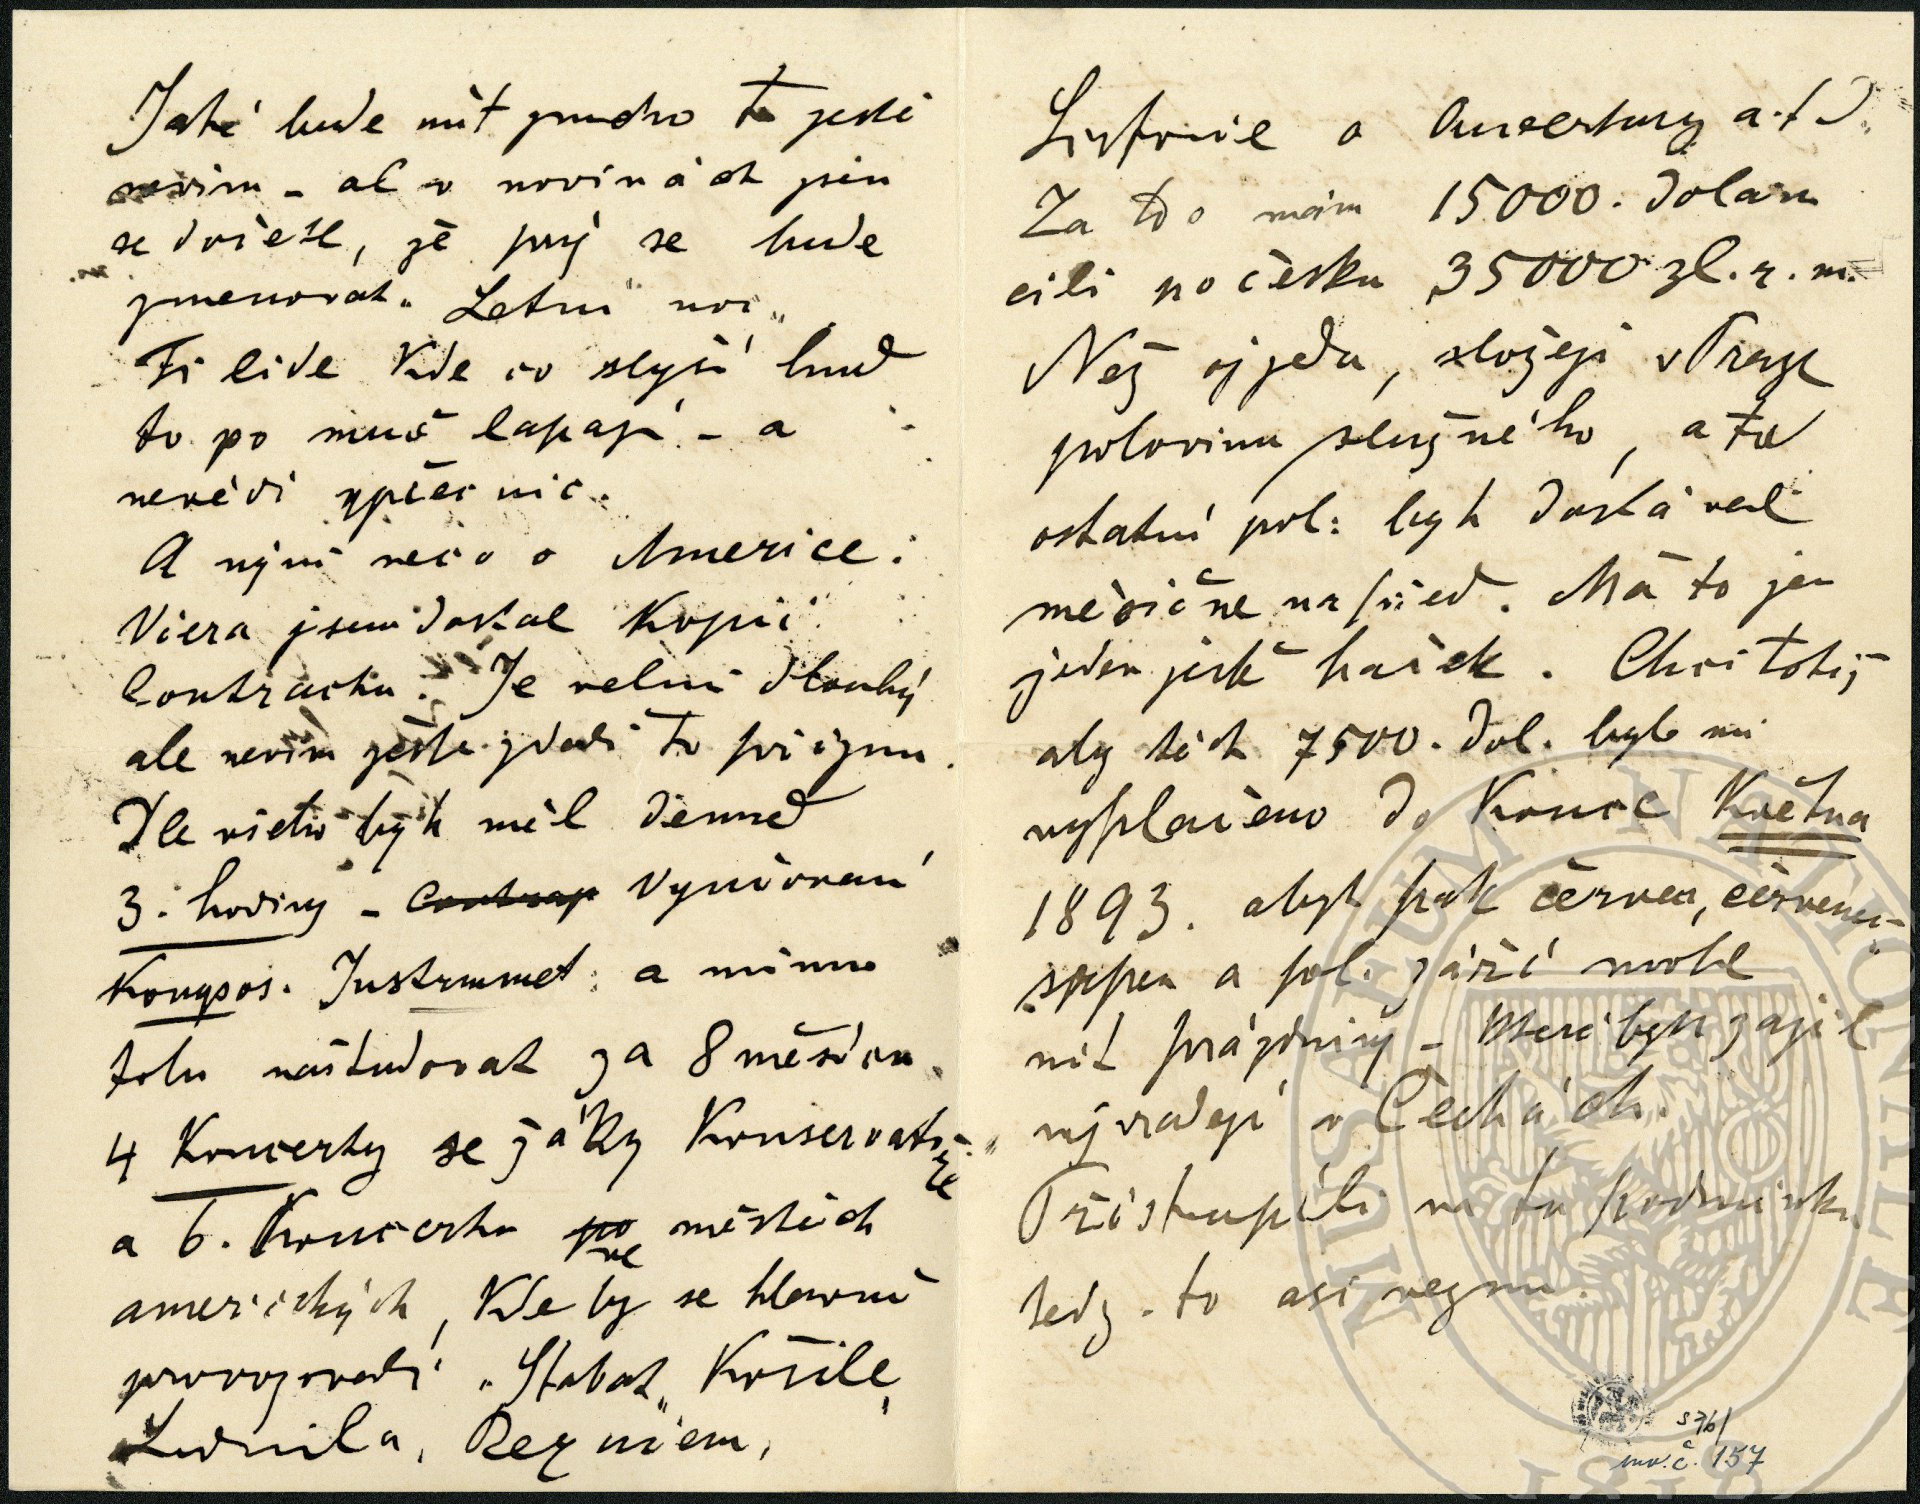 Jaké bude mít jméno to ještě
nevím – al v novinách jsem
se dočetl, že prý se bude
jmenovat „Letní noc„
Ti lidé kde co slyší hned
to po muš lapají – a
nevědí zpěč nic.
A nyní něco o Americe:
Včera jsem dostal Kopii
Contractu. Je velmi dlouhý
ale nevím ještě zdali to přijmu.
Dle všeho bych měl denně
3. hodiny – Contrap Vyučování
Kompos. Instrummet: a mimo
toho naštudovat za 8 měsíců
4 Koncerty se žáky Konservatoře
a 6. Koncertu po ve městech
amerických, kde by se hlavně
provozovali „Stabat„ Košile,
Ludmila, Requiem,
Sinfonie a Ouvertury a.t.d.
Za to mám 15000. dolarů
čili po česku 35000 zl. r. m.
Než odjedu, složejí v Praze
polovinu služného, a tu
ostatní pol: bych dostával
měsíčně napřed. Má to jen
jeden ještě háček. Chci totiž
aby těch 7500. dol. bylo mi
vyplaceno do konce Května
1893. abych pak červen, červenec
srpen a pol. září mohl
mít prázdniny – které bych zažil
nejradeji v Čechách.
Přistoupíli na tu podmínku
tedy – to asi vezmu.
MUSAEUM NATIONALE
1818
S 76/
inv. č. 157